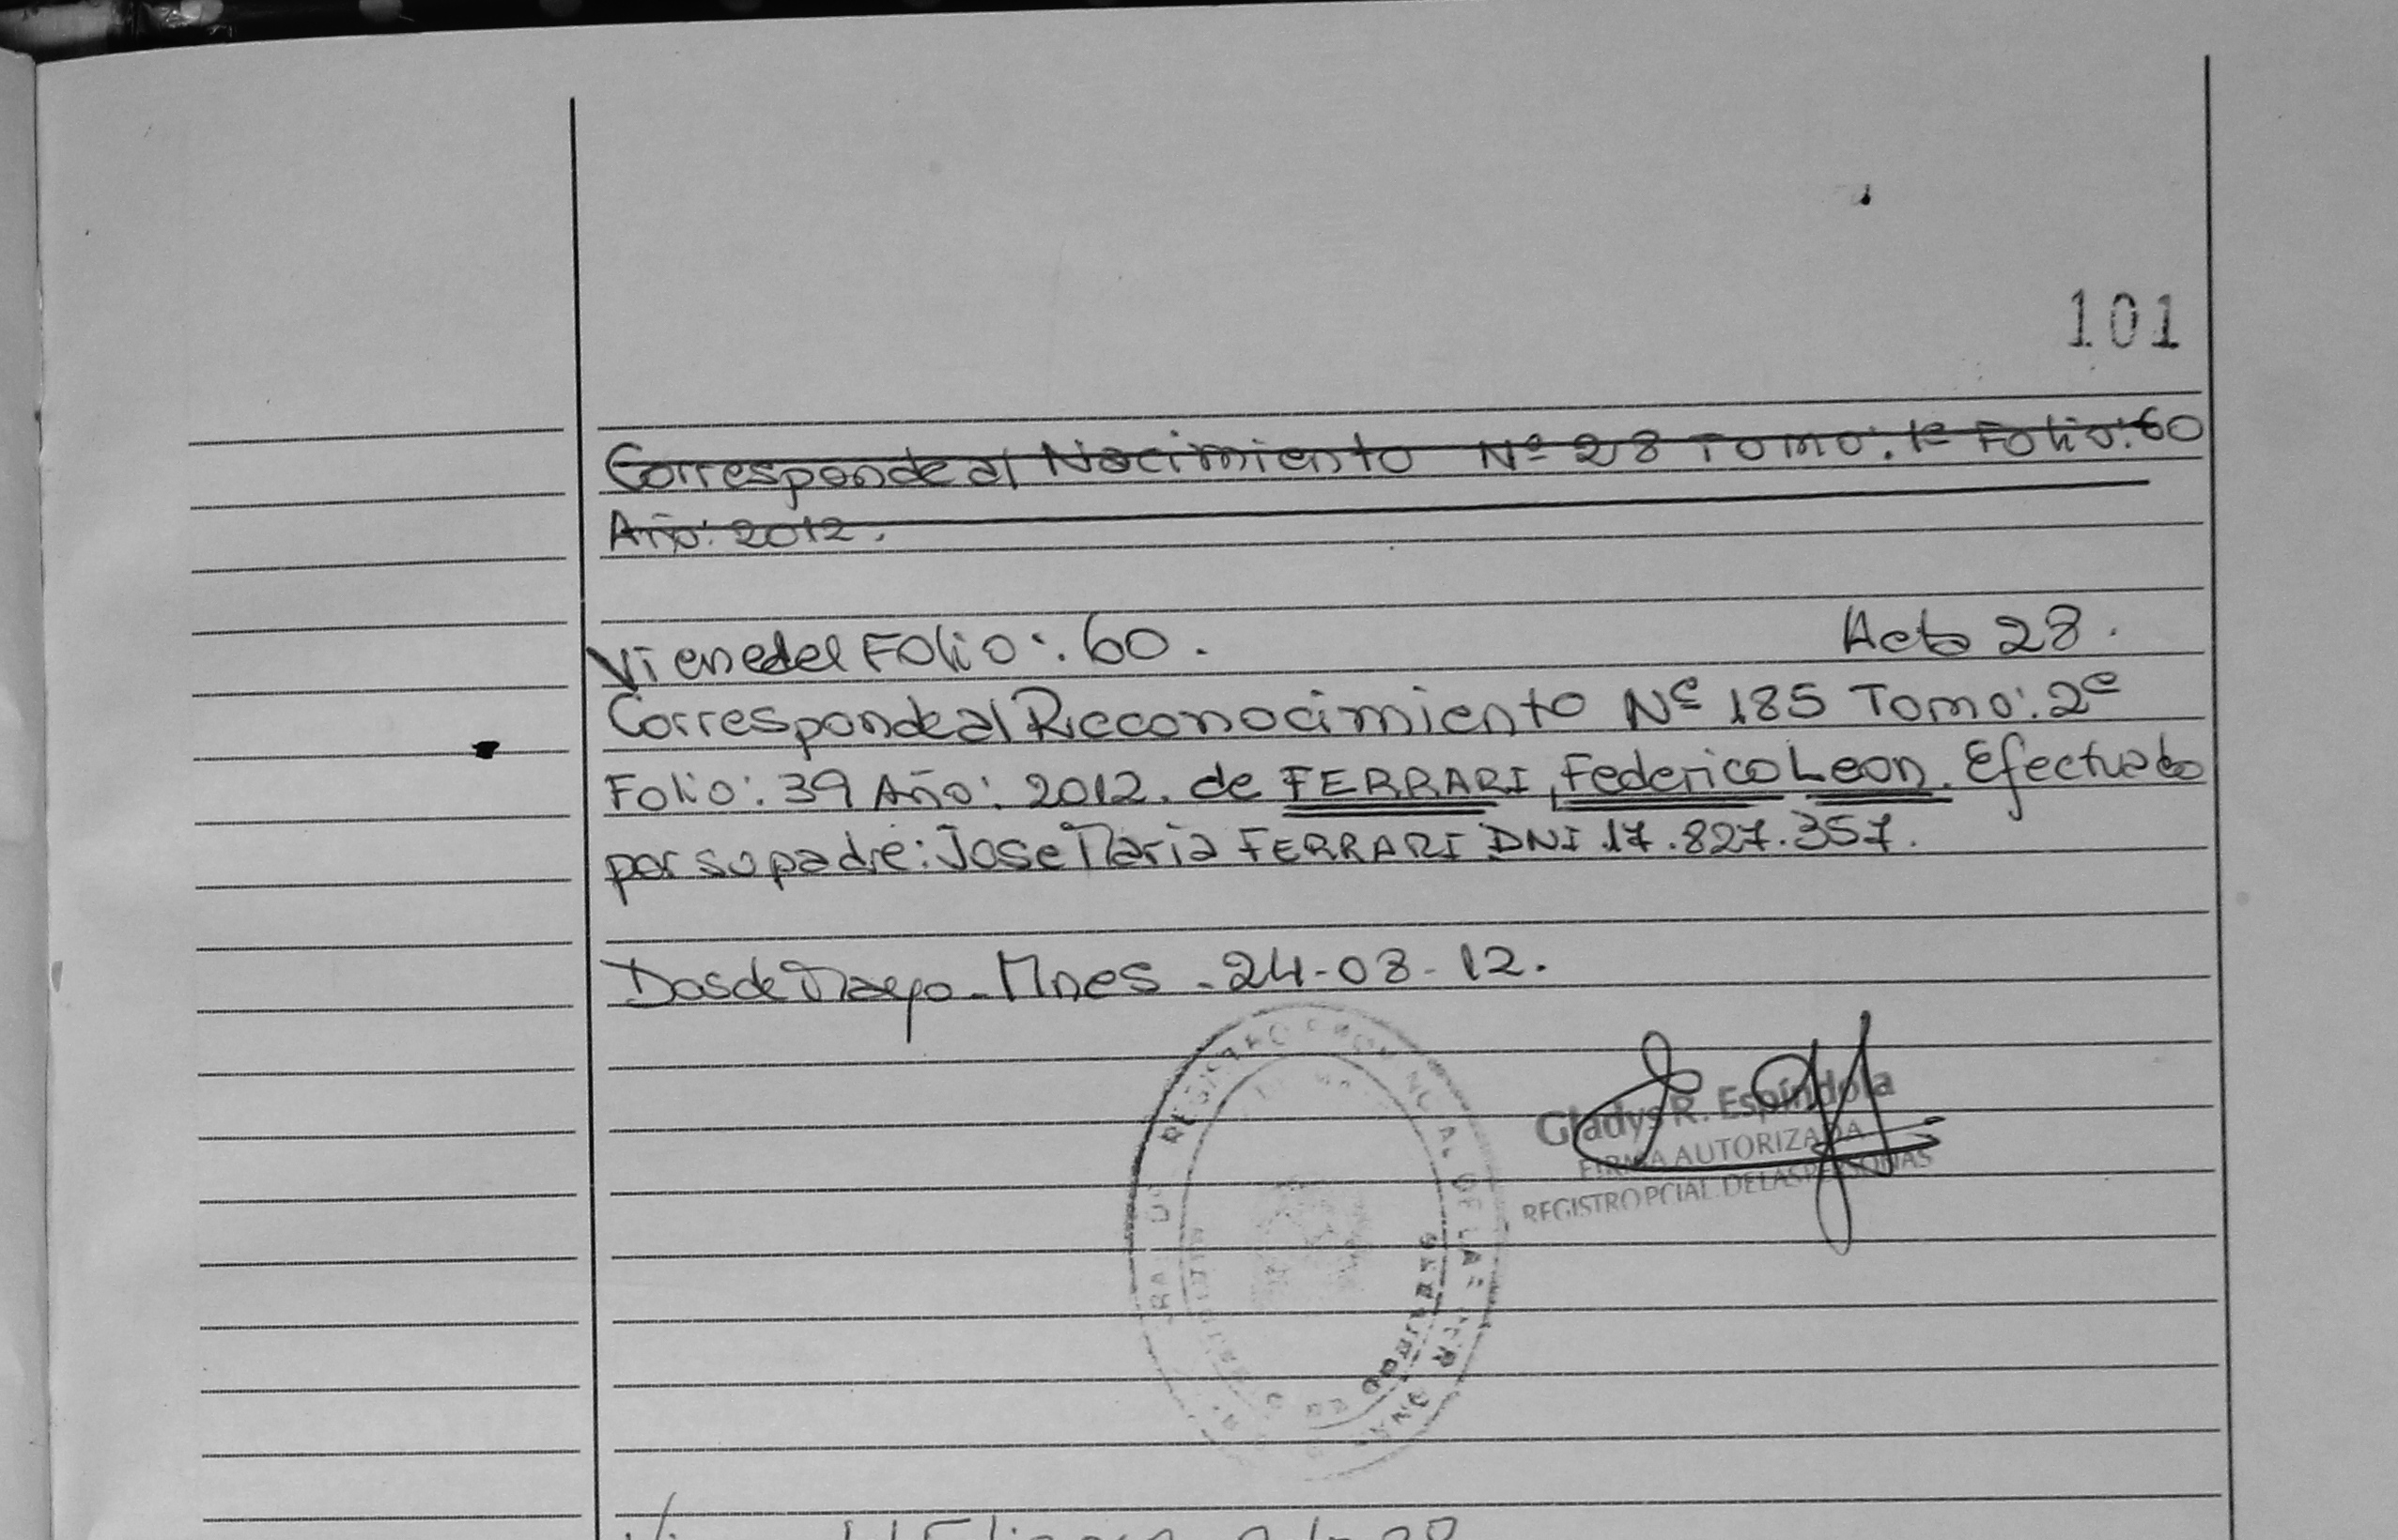 101
Corresponde al Nacimiento Nº 28 Tomo: 1º Folio: 60
Año: 2012.
Viene del Folio: 60. Acta 28.
Corresponde al Reconocimiento Nº 185 Tomo: 2º
Folio: 39 Año: 2012. de FERRARI, Federico Leon. Efectuado
por su padre: Jose Maria FERRARI DNI 17.827.357.
Dos de Mayo - Mnes - 24-08-12.
Gladys R. Espíndola
FIRMA AUTORIZADA
REGISTRO PCIAL. DE LAS PERSONAS
REGISTRO PROVINCIAL DE LAS